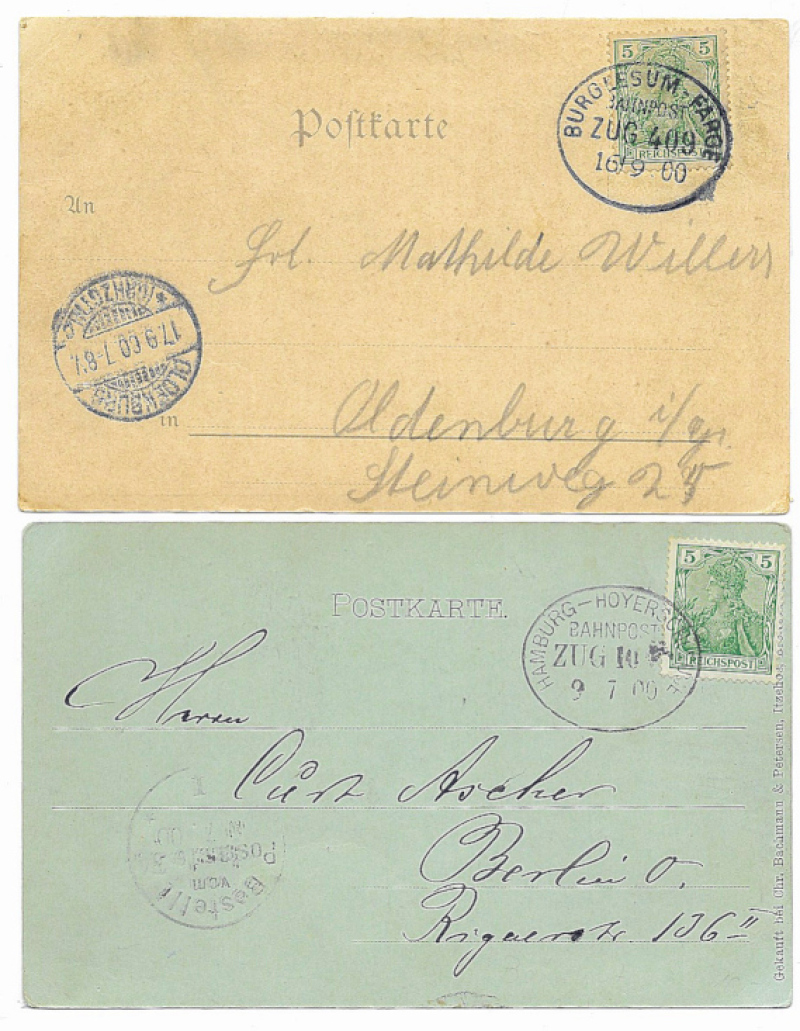 5 5
BURGLESUM-FARGE
BAHNPOST
ZUG 409
16/9 00
REICHSPOST
Postkarte
An
Frl. Mathilde Willers
OLDENBURG
17.9.00.7-8V.
in
Oldenburg i/gr.
Steinweg 25
5 5
POSTKARTE.
HAMBURG-HOYERSCHLEUSE
BAHNPOST
ZUG
9 7 00
REICHSPOST
Herrn
Curt Ascher
Berlin O.
Rigaerstr. 136 II
Bestellt
vom
Postamte
Gekauft bei Chr. Bachmann & Petersen, Itzehoe,